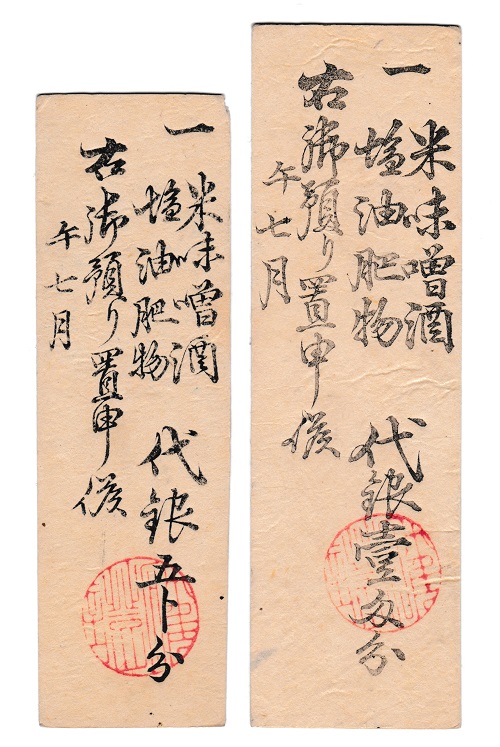 一
米味噌酒
塩油肥物
代銀壹匁分
右御預り置申候
午七月
一
米味噌酒
塩油肥物
代銀五卜分
右御預り置申候
午七月